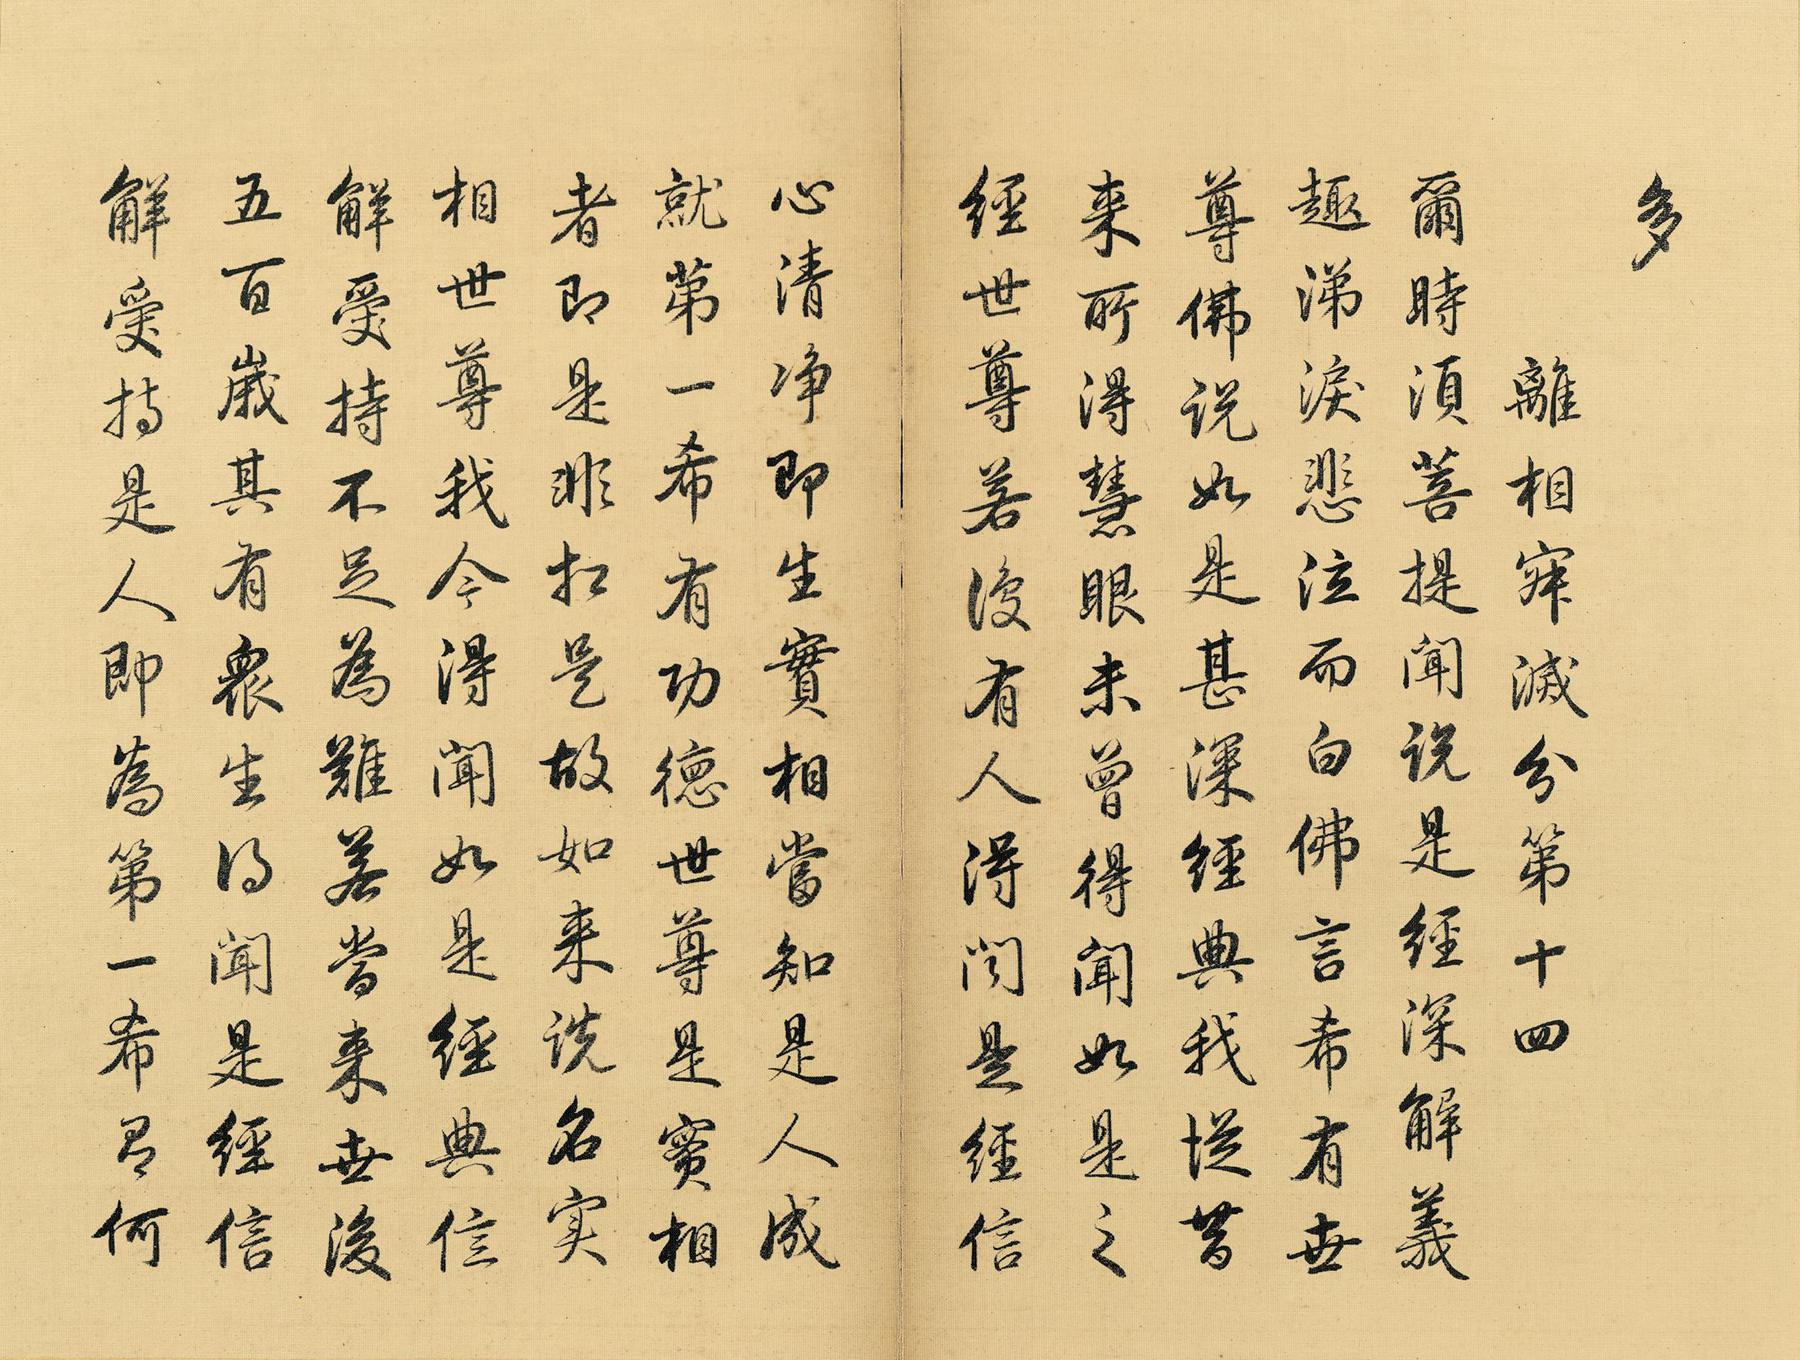 多
離相寂滅分第十四
爾時須菩提聞説是經深解義
趣涕淚悲泣而白佛言希有世
尊佛説如是甚深經典我從昔
来所得慧眼未曾得聞如是之
經世尊若復有人得聞是經信
心清净即生實相當知是人成
就第一希有功德世尊是實相
者即是非相是故如来説名实
相世尊我今得聞如是經典信
解受持不足為難若當来世後
五百歲其有衆生得聞是經信
解受持是人即為第一希有何